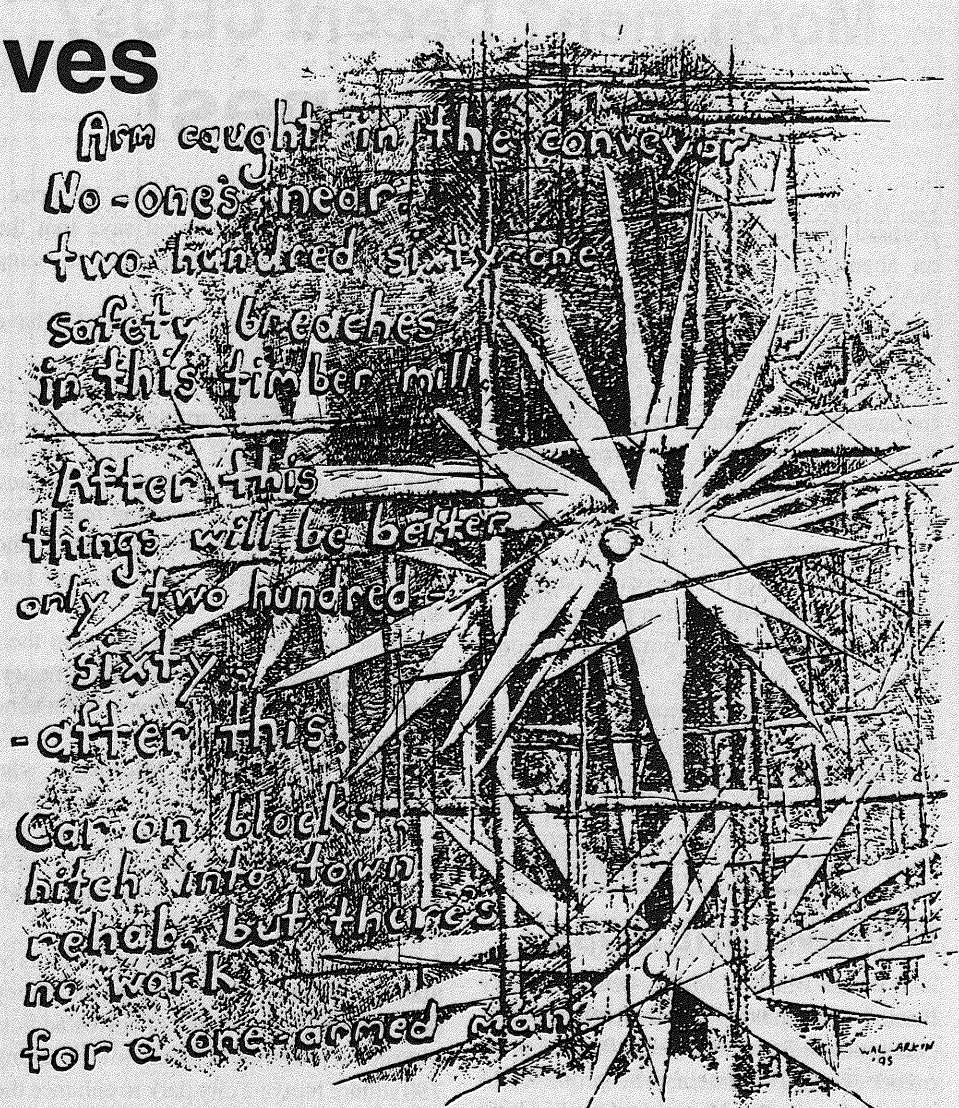 ves
Arm caught in the conveyor
No-one's near.
two hundred sixty-one
safety breaches
in this timber mill.
After this
things will be better
only two hundred-
sixty-
-after this.
Car on blocks.
hitch into town
rehab, but there's
no work
for a one-armed man.
WAL
95